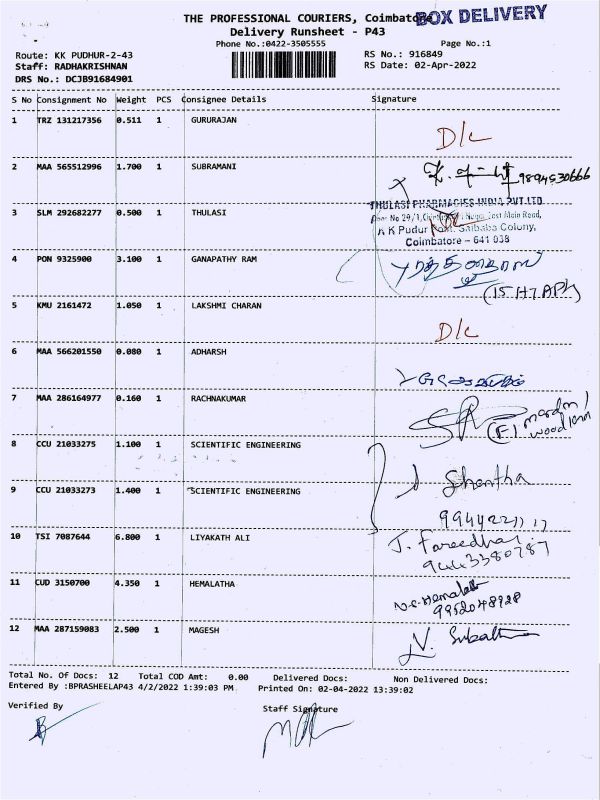 THE PROFESSIONAL COURIERS, Coimbatore
BOX DELIVERY
Delivery Runsheet - P43
Phone No.:0422-3505555
Page No.:1
Route: KK PUDHUR-2-43
RS No.: 916849
Staff: RADHAKRISHNAN
RS Date: 02-Apr-2022
DRS No.: DCJB91684901
S No Consignment No Weight PCS Consignee Details Signature
1 TRZ 131217356 0.511 1 GURURAJAN
D/c
2 MAA 565512996 1.700 1 SUBRAMANI
9894530666
3 SLM 292682277 0.500 1 THULASI
THULASI PHARMACIES INDIA PVT LTD
East Main Road,
K K Pudur Post. Saibaba Colony,
Coimbatore - 641 038
4 PON 9325900 3.100 1 GANAPATHY RAM
5 KMU 2161472 1.050 1 LAKSHMI CHARAN
D/c
6 MAA 566201550 0.080 1 ADHARSH
7 MAA 286164977 0.160 1 RACHNAKUMAR
8 CCU 21033275 1.100 1 SCIENTIFIC ENGINEERING
Shantha
9 CCU 21033273 1.400 1 SCIENTIFIC ENGINEERING
10 TSI 7087644 6.800 1 LIYAKATH ALI
J. Fareedha
11 CUD 3150700 4.350 1 HEMALATHA
9952048928
12 MAA 287159083 2.500 1 MAGESH
Total No. Of Docs: 12 Total COD Amt: 0.00 Delivered Docs: Non Delivered Docs:
Entered By :BPRASHEELAP43 4/2/2022 1:39:03 PM Printed On: 02-04-2022 13:39:02
Verified By
Staff Signature